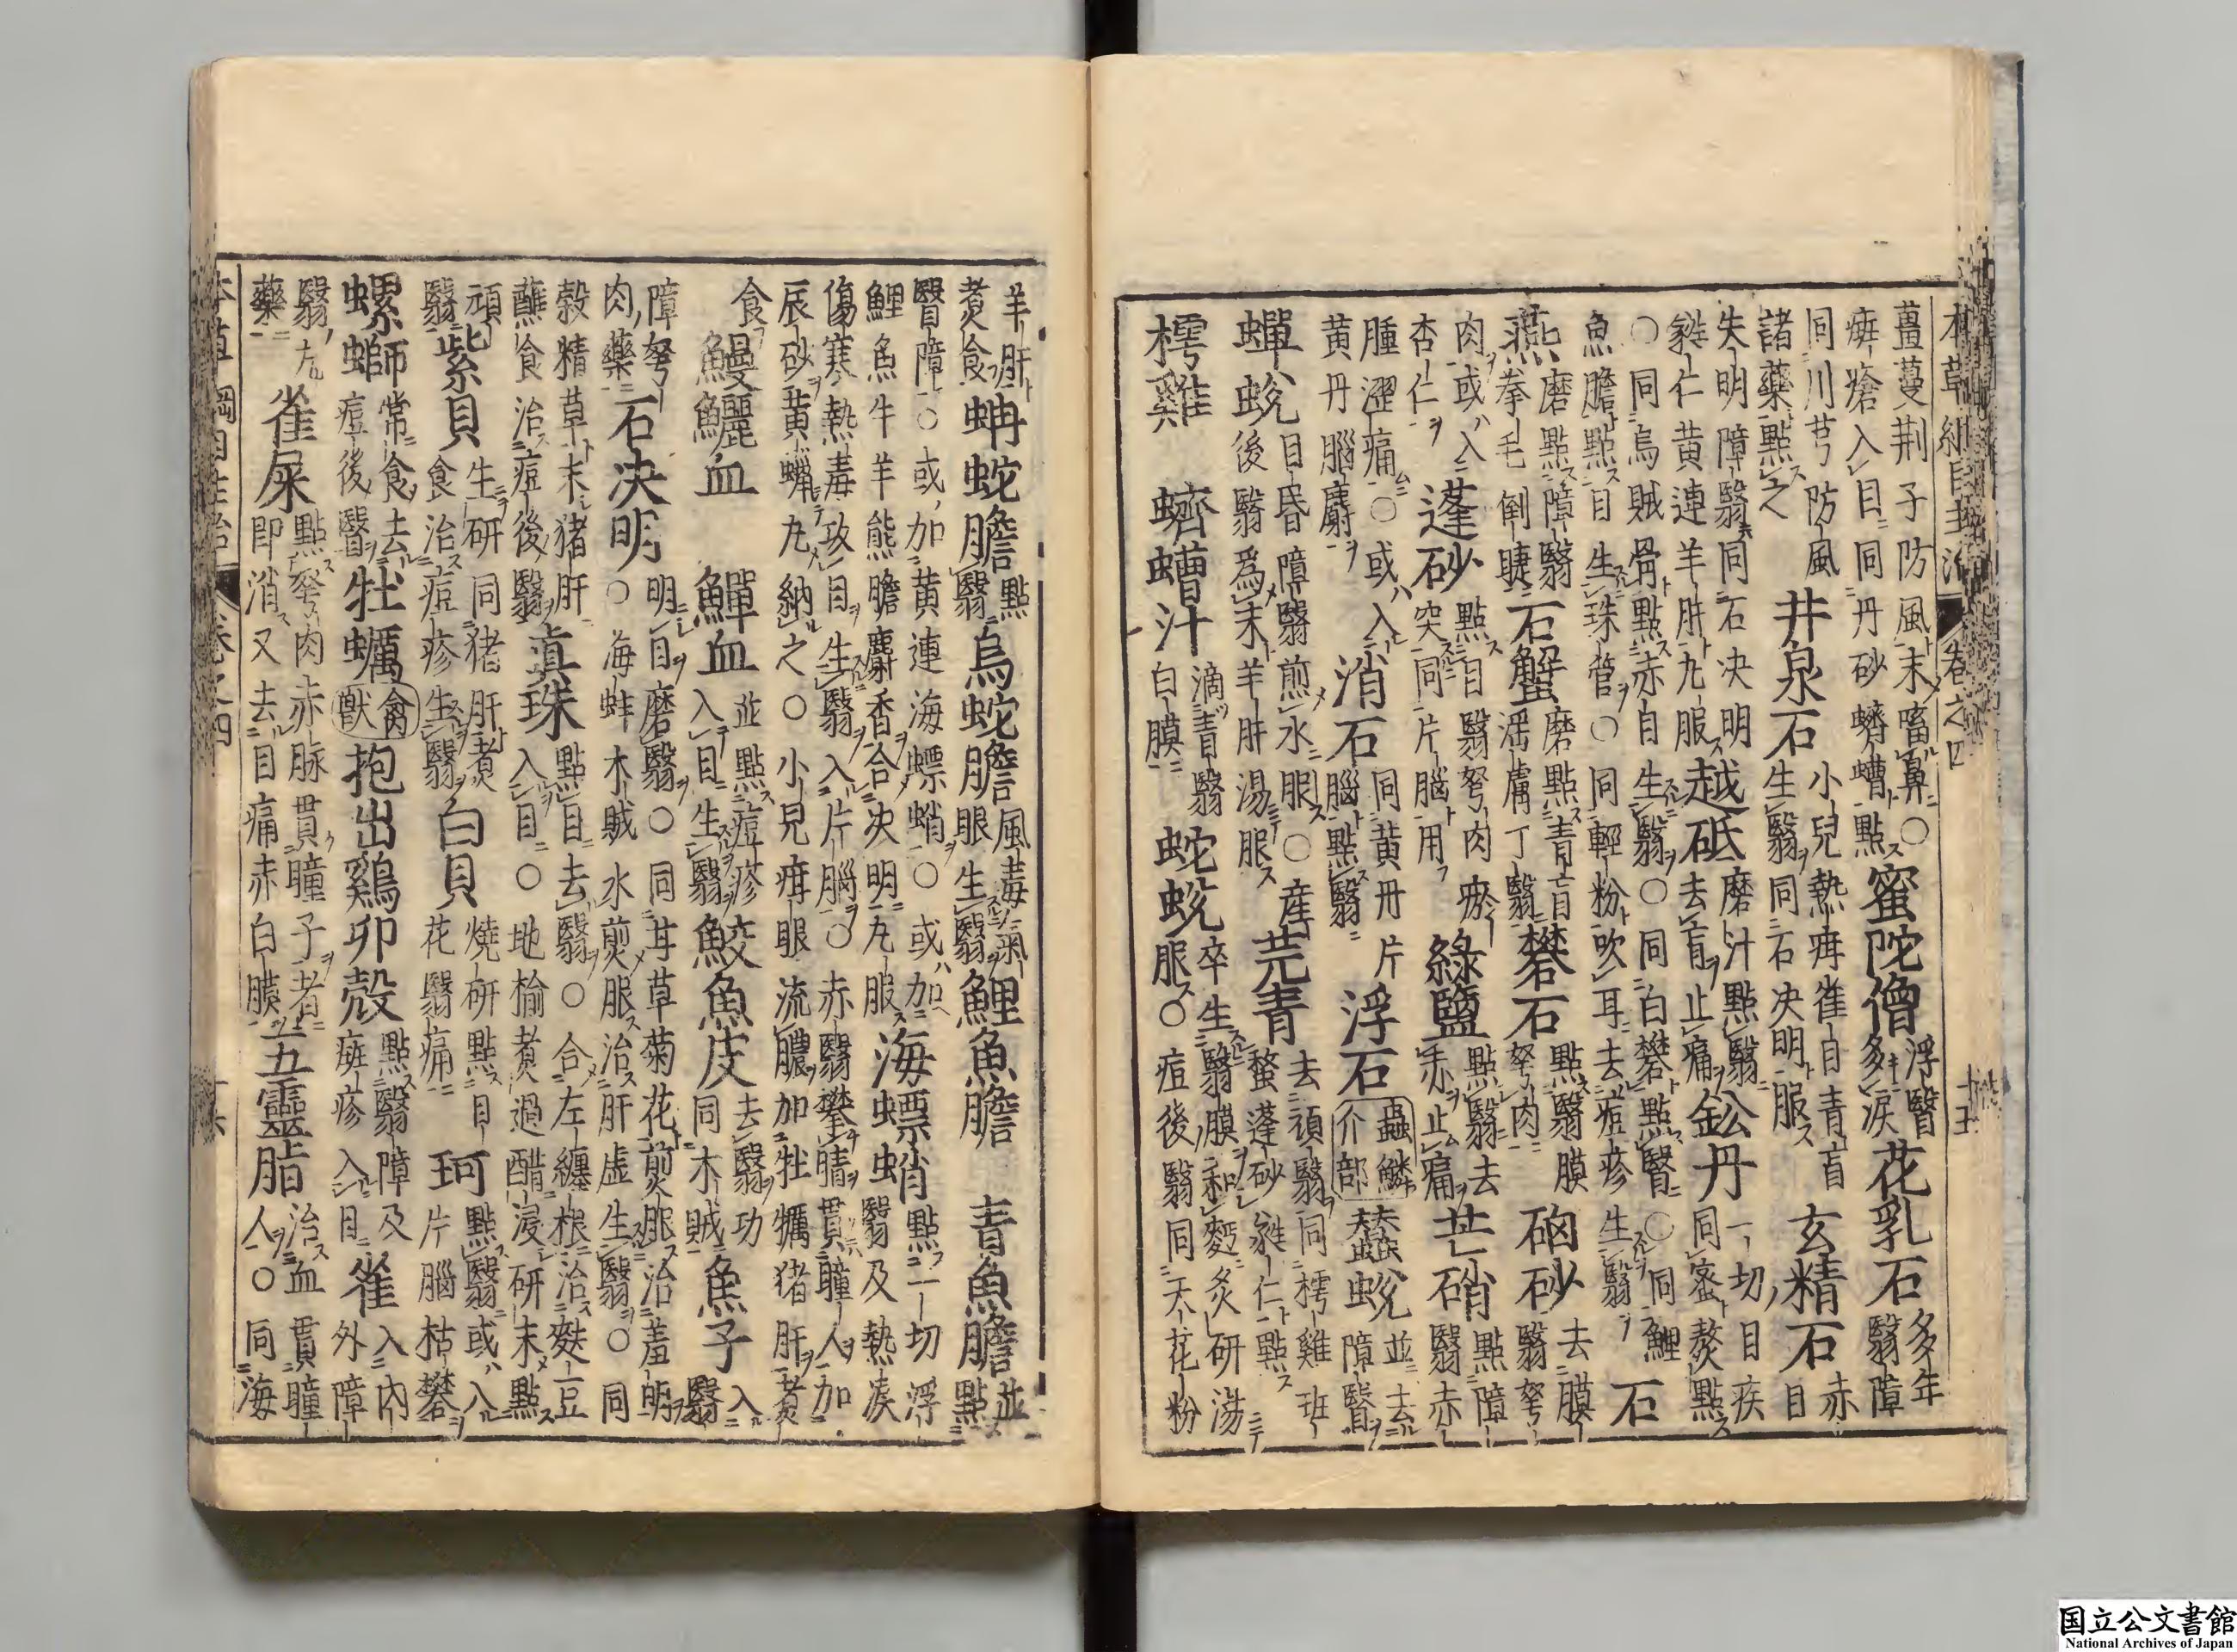 本草綱目主治 卷之四 十五
薑蔓荊子防風末㗜鼻○
痳瘡入目同丹砂蠐螬點
蜜陀僧
浮翳
多淚
花乳石
多年
翳障
同川芎防風
諸藥點之
井泉石
小兒熱疳雀目青盲
生翳同石決明服
玄精石
赤
目
失明障翳同石決明
仁黃連羊肝丸服
越砥
磨汁點翳
去盲止痛
鈆丹
一切目疾
同蜜熬點
○同烏賊骨點赤目生翳○同白礬點翳○同鯉
魚膽點目生珠管○同輕粉吹耳去痘疹生翳
石
燕
磨點障翳
拳毛倒睫
石蟹
磨點青盲
淫膚丁翳
礬石
點翳膜
弩肉
硇砂
去膜
翳弩
肉或入
杏仁
蓬砂
點目翳弩肉瘀
突同片腦用
綠鹽
點翳去
赤止痛
芒硝
點障
翳赤
腫澀痛○或入
黃丹腦麝
消石
同黃丹片
腦點翳
浮石
蟲鱗
介部
蠶蛻
並去
障翳
蟬蛻
目昏障翳煎水服○產
後翳爲末羊肝湯服
芫青
去頑翳同樗雞班
蝥蓬砂仁點
樗雞 蠐螬汁
滴青翳
白膜
蛇蛻
卒生翳膜和麪炙研湯
服○痘後翳同天花粉
羊肝
煑食
蚺蛇膽
點
翳
烏蛇膽
風毒氣
眼生翳
鯉魚膽 青魚膽
並
點
翳障○或加黃連海螵蛸○或加
鯉魚牛羊熊膽麝香合決明丸服
海螵蛸
點一切浮
翳及熱淚
傷寒熱毒攻目生翳入片腦○赤翳攀睛貫瞳人加
辰砂黃蠟丸納之○小兒疳眼流膿加牡蠣猪肝煑
食
鰻鱺血 鱓血
並點痘疹
入目生翳
鮫魚皮
去翳功
同木賊
魚子
入
翳
障弩
肉藥
石决明
明目磨翳○同甘草菊花煎服治羞明
○海蚌木賊水煎服治肝虛生翳○同
穀精草末猪肝
蘸食治痘後翳
真珠
點目去翳○合左纏根治麩豆
入目○地榆煑過醋浸研末點
頑
翳
紫貝
生研同猪肝煑
食治痘疹生翳
白貝
燒研點目
花翳痛
珂
點翳或入
片腦枯礬
螺螄
常食去
痘後翳
牡蠣
禽
獸
抱出鷄卵殼
點翳障及
痳疹入目
雀
入內
外障
翳丸
藥
雀屎
點弩肉赤脈貫瞳子者
即消又去目痛赤白膜
五靈脂
治血貫瞳
人○同海
本草綱目主治 卷之四
国立公文書館
National Archives of Japan